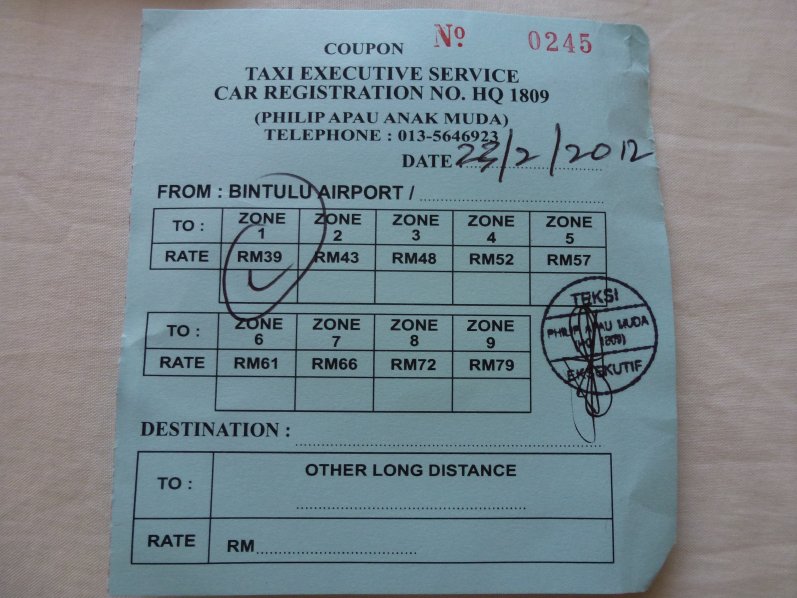 COUPON Nº 0245
TAXI EXECUTIVE SERVICE
CAR REGISTRATION NO. HQ 1809
(PHILIP APAU ANAK MUDA)
TELEPHONE : 013-5646923
DATE 23/2/2012
FROM : BINTULU AIRPORT /
TO : ZONE 1 ZONE 2 ZONE 3 ZONE 4 ZONE 5
RATE RM39 RM43 RM48 RM52 RM57
TO : ZONE 6 ZONE 7 ZONE 8 ZONE 9
RATE RM61 RM66 RM72 RM79
TEKSI
PHILIP APAU MUDA
HQ 1809)
EKSEKUTIF
DESTINATION :
TO : OTHER LONG DISTANCE
RATE RM